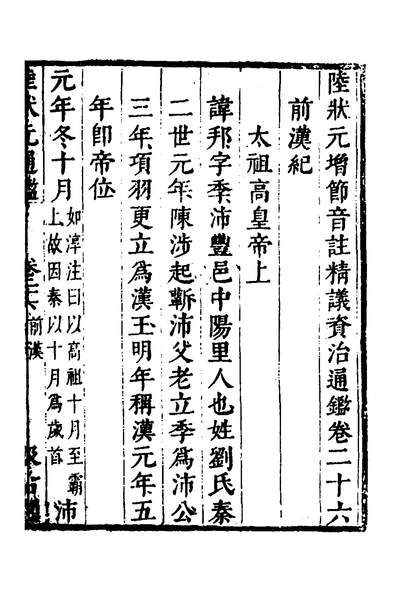 陸狀元增節音註精議資治通鑑卷二十六
前漢紀
太祖高皇帝上
諱邦字季沛豐邑中陽里人也姓劉氏秦
二世元年陳涉起蘄沛父老立季為沛公
三年項羽更立為漢王明年稱漢元年五
年卽帝位
元年冬十月如淳注曰以高祖十月至霸上故因秦以十月為歲首沛
陸狀元通鑑 卷二六 前漢